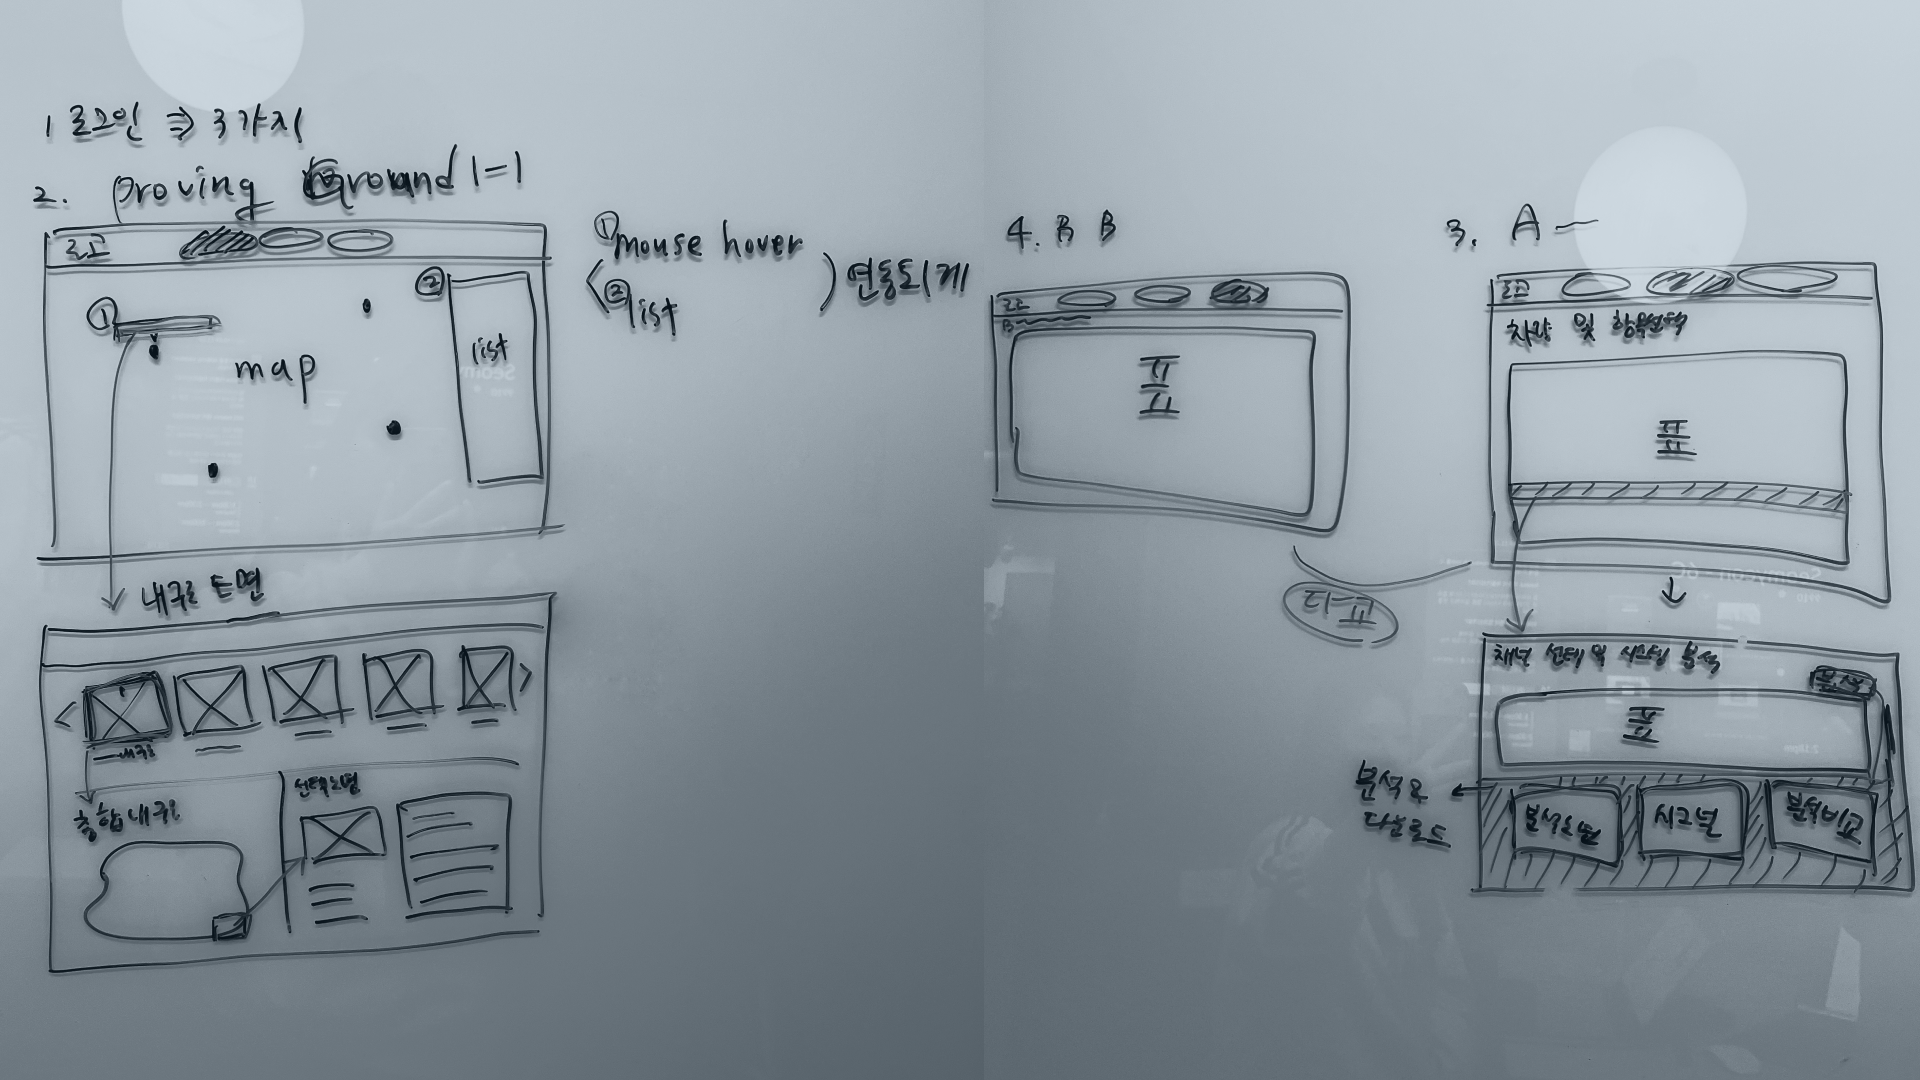 1 로그인 ⇒ 3가지
2. Proving Ground 1-1
로고
①
②
map
list
① mouse hover
② list
연동되게
내구로 노면
내구로
종합내구로
선택노면
4. B B
로고
B
표
비교
3. A
로고
차량 및 항목선택
표
채널 선택 및 시그널 분석
분석
표
분석노면
시그널
분석비교
분석용
다운로드